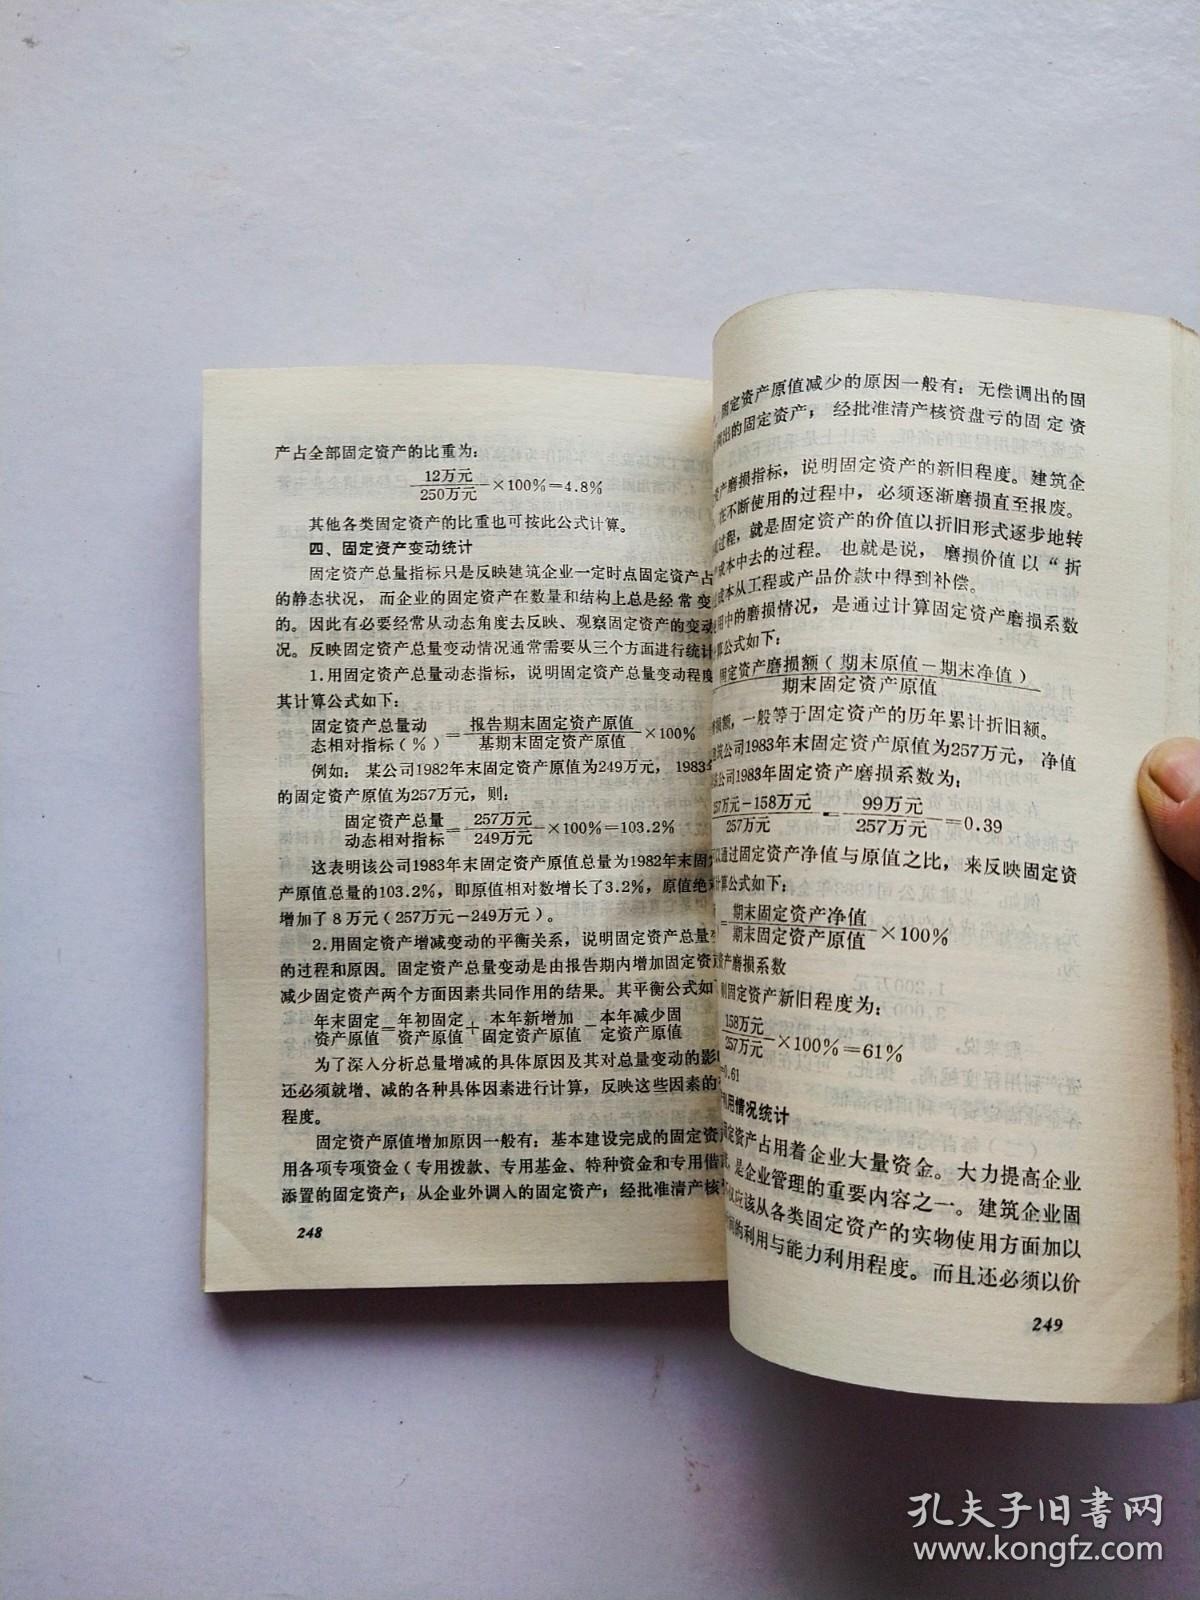 产占全部固定资产的比重为：
12万元
250万元
×100%＝4.8%
其他各类固定资产的比重也可按此公式计算。
四、固定资产变动统计
固定资产总量指标只是反映建筑企业一定时点固定资产占
的静态状况，而企业的固定资产在数量和结构上总是经常变
的。因此有必要经常从动态角度去反映、观察固定资产的变动
况。反映固定资产总量变动情况通常需要从三个方面进行统计
1.用固定资产总量动态指标，说明固定资产总量变动程度
其计算公式如下：
固定资产总量动
态相对指标（%）
＝
报告期末固定资产原值
基期末固定资产原值
×100%
例如：某公司1982年末固定资产原值为249万元，1983
的固定资产原值为257万元，则：
固定资产总量
动态相对指标
＝
257万元
249万元
×100%＝103.2%
这表明该公司1983年末固定资产原值总量为1982年末固
产原值总量的103.2%，即原值相对数增长了3.2%，原值绝
增加了8万元（257万元－249万元）。
2.用固定资产增减变动的平衡关系，说明固定资产总量
的过程和原因。固定资产总量变动是由报告期内增加固定资
减少固定资产两个方面因素共同作用的结果。其平衡公式如
年末固定
资产原值
＝
年初固定
资产原值
＋
本年新增加
固定资产原值
－
本年减少固
定资产原值
为了深入分析总量增减的具体原因及其对总量变动的影
还必须就增、减的各种具体因素进行计算，反映这些因素的
程度。
固定资产原值增加原因一般有：基本建设完成的固定资
用各项专项资金（专用拨款、专用基金、特种资金和专用借
添置的固定资产；从企业外调入的固定资产；经批准清产核
248
固定资产原值减少的原因一般有：无偿调出的固
出的固定资产；经批准清产核资盘亏的固定资
产磨损指标，说明固定资产的新旧程度。建筑企
在不断使用的过程中，必须逐渐磨损直至报废。
过程，就是固定资产的价值以折旧形式逐步地转
成本中去的过程。也就是说，磨损价值以“折
成本从工程或产品价款中得到补偿。
用中的磨损情况，是通过计算固定资产磨损系数
算公式如下：
固定资产磨损额（期末原值－期末净值）
期末固定资产原值
损额，一般等于固定资产的历年累计折旧额。
建筑公司1983年末固定资产原值为257万元，净值
公司1983年固定资产磨损系数为：
257万元－158万元
257万元
＝
99万元
257万元
＝0.39
以通过固定资产净值与原值之比，来反映固定资
计算公式如下：
＝
期末固定资产净值
期末固定资产原值
×100%
资产磨损系数
则固定资产新旧程度为：
158万元
257万元
×100%＝61%
＝0.61
利用情况统计
固定资产占用着企业大量资金。大力提高企业
，是企业管理的重要内容之一。建筑企业固
仅应该从各类固定资产的实物使用方面加以
间的利用与能力利用程度。而且还必须以价
249
孔夫子旧书网
www.kongfz.com